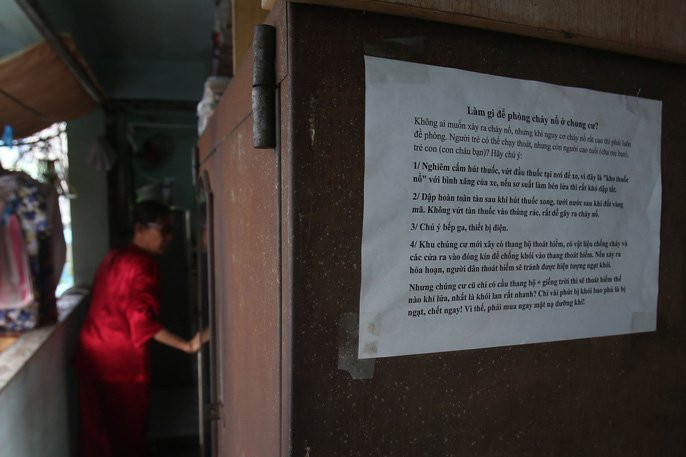 Làm gì để phòng cháy nổ ở chung cư?
Không ai muốn xảy ra cháy nổ, nhưng khi nguy cơ cháy nổ rất cao thì phải luôn
đề phòng. Người trẻ có thể chạy thoát, nhưng còn người cao tuổi (cha mẹ bạn),
trẻ con (con cháu bạn)? Hãy chú ý:
1/ Nghiêm cấm hút thuốc, vứt đầu thuốc tại nơi để xe, vì đây là "kho thuốc
nổ" với bình xăng của xe, nếu sơ suất làm bén lửa thì rất khó dập tắt.
2/ Dập hoàn toàn tàn sau khi hút thuốc xong, tưới nước sau khi đốt vàng
mã. Không vứt tàn thuốc vào thùng rác, rất dễ gây ra cháy nổ.
3/ Chú ý bếp ga, thiết bị điện.
4/ Khu chung cư mới xây có thang bộ thoát hiểm, có vật liệu chống cháy và
các cửa ra vào đóng kín để chống khói vào thang thoát hiểm. Nếu xảy ra
hỏa hoạn, người dân thoát hiểm sẽ tránh được hiện tượng ngạt khói.
Nhưng chúng cư cũ chỉ có cầu thang bộ + giếng trời thì sẽ thoát hiểm thế
nào khi lửa, nhất là khói lan rất nhanh? Chỉ vài phút bị khói bao phủ là bị
ngạt, chết ngay! Vì thế, phải mua ngay mặt nạ dưỡng khí!